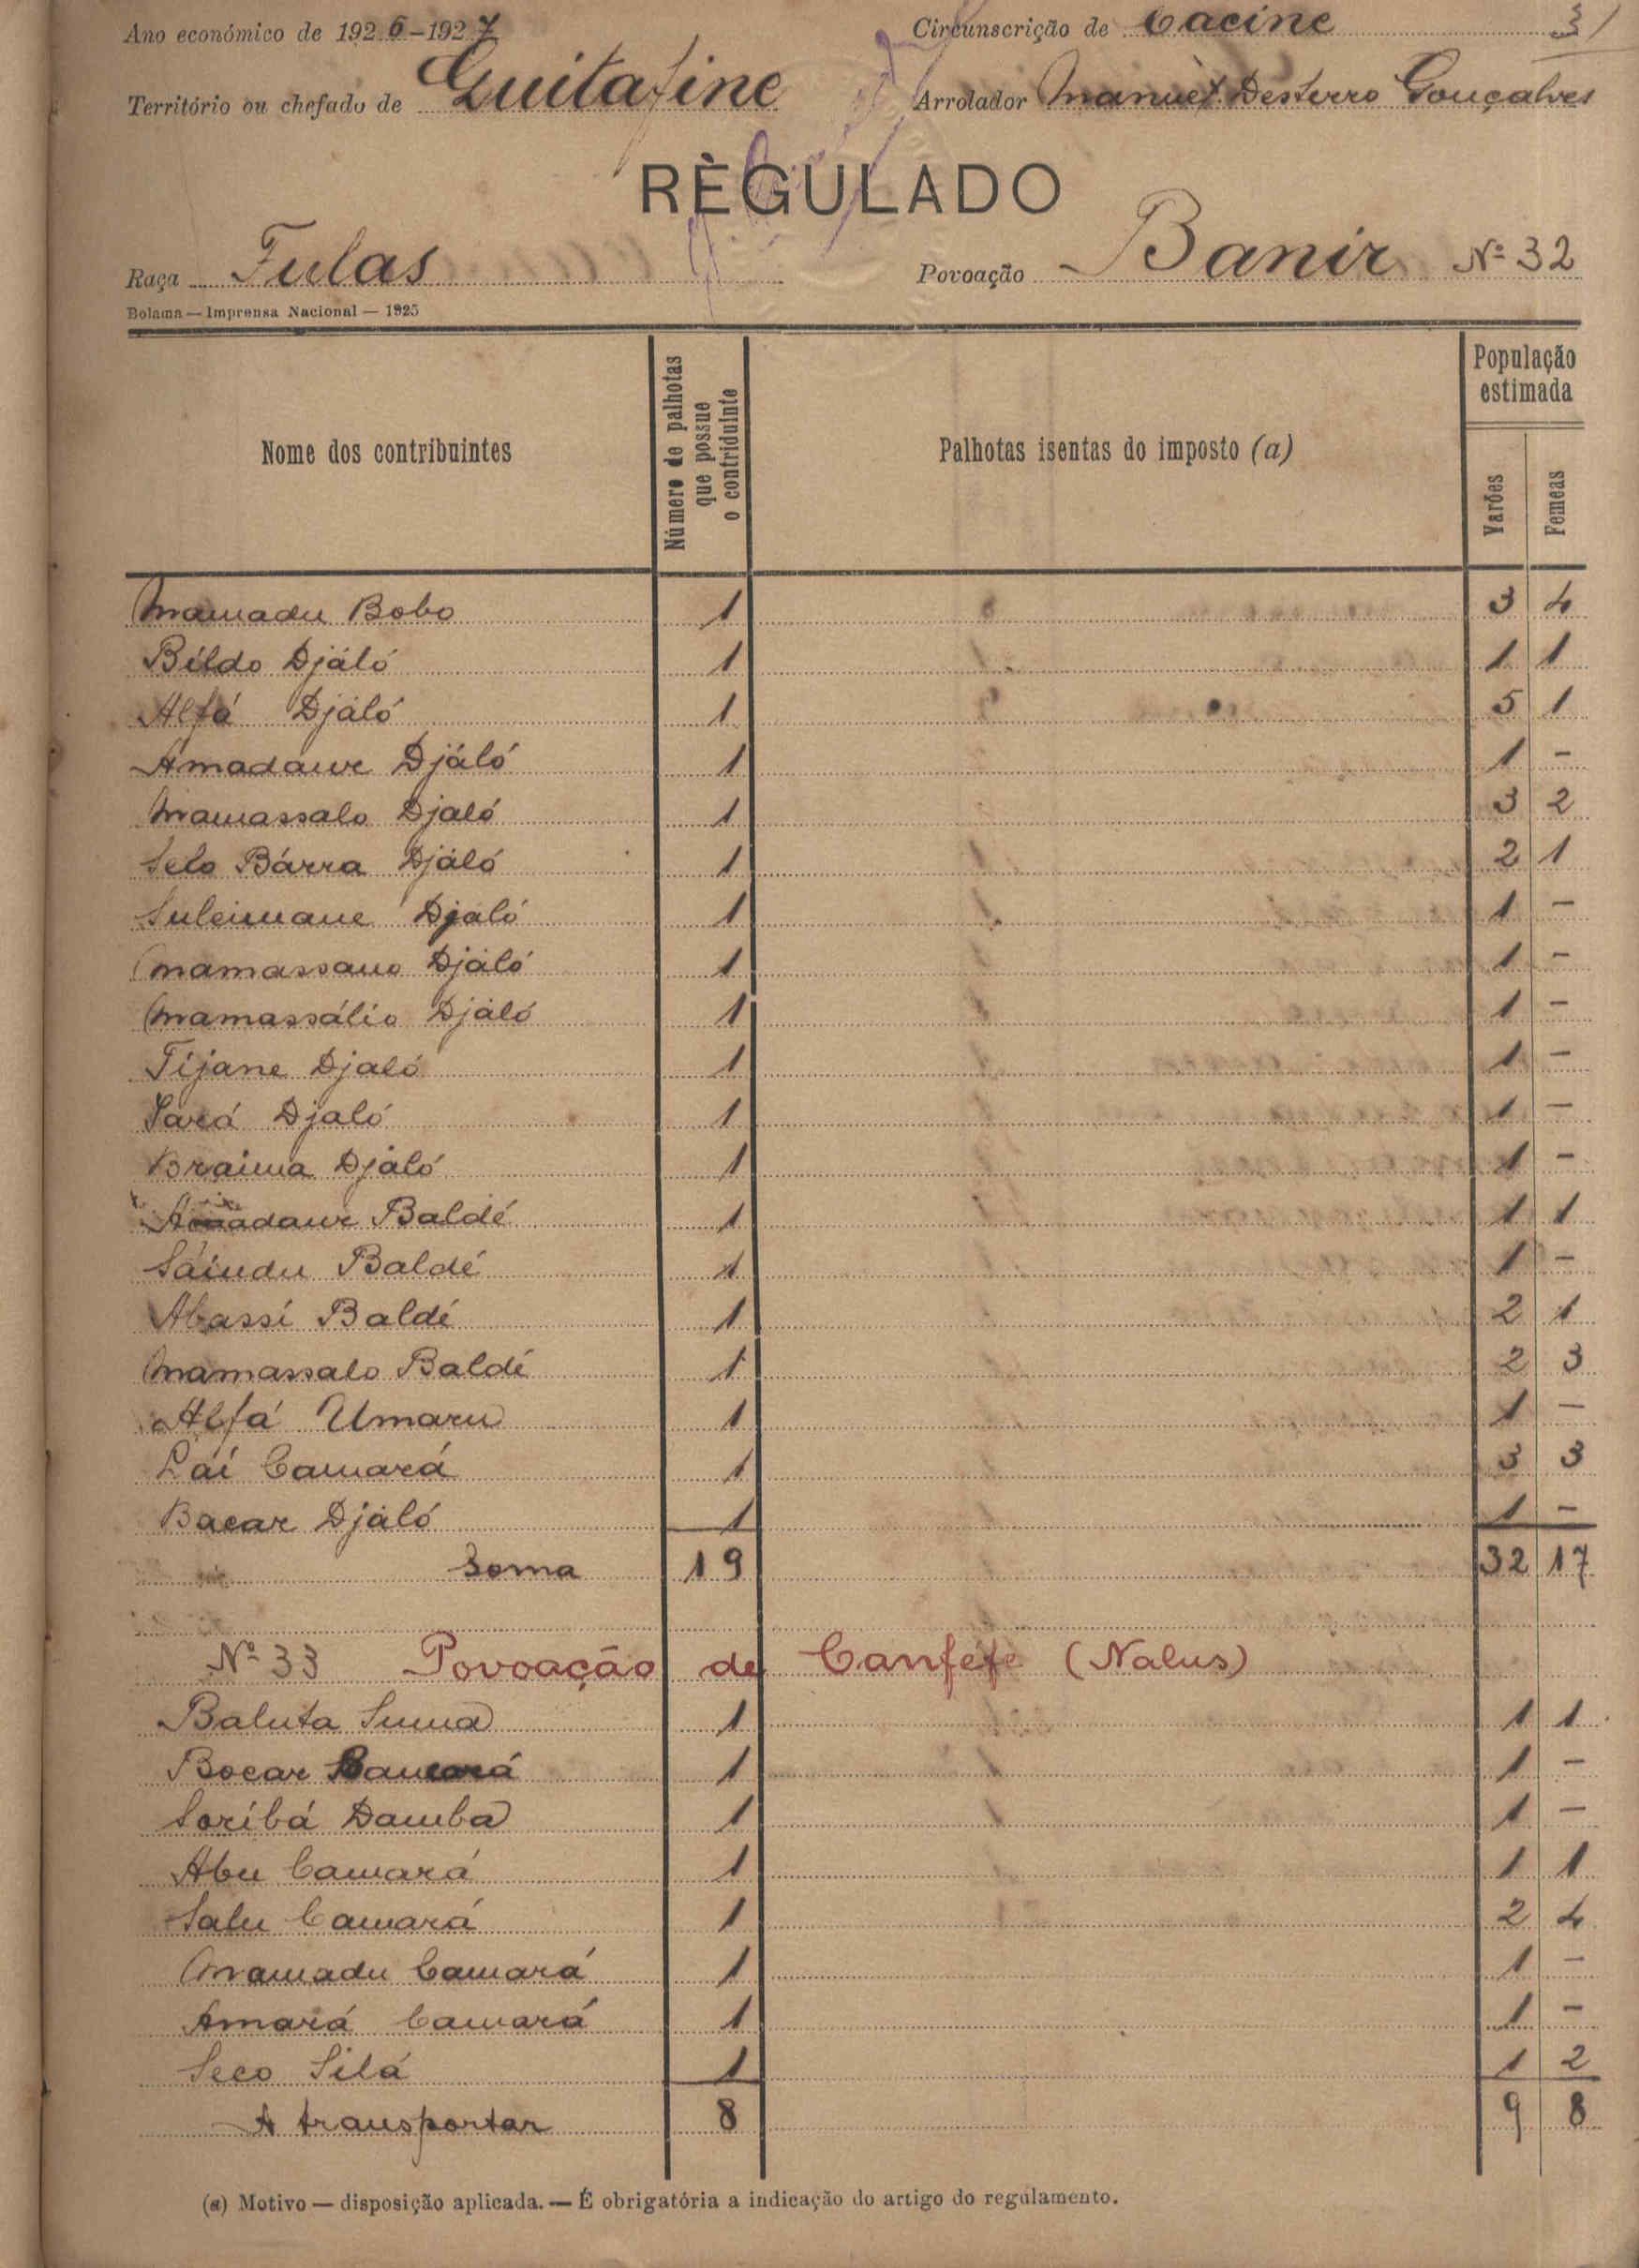 Ano económico de 1926-1927
Circunscrição de Cacine
31
Território ou chefado de Guitafine
Arrolador Manuel Desterro Gonçalves
RÈGULADO
Raça Fulas
Povoação Banir Nº 32
Bolama — Imprensa Nacional — 1925
Nome dos contribuintes
Número de palhotas que possue o contriduinte
Palhotas isentas do imposto (a)
População estimada
Varões
Femeas
Mamadu Bobo 1 3 4
Bíldo Djáló 1 1 1
Alfá Djáló 1 5 1
Amadauri Djáló 1 1 -
Mamassalo Djaló 1 3 2
Selo Bárra Djáló 1 2 1
Suleimane Djaló 1 1 -
Mamassano Djáló 1 1 -
Mamassálio Djáló 1 1 -
Tíjane Djaló 1 1 -
Sará Djaló 1 1 -
Braima Djáló 1 1 -
Amadauri Baldé 1 1 1
Sáindu Baldé 1 1 -
Abassí Baldé 1 2 1
Mamassalo Baldé 1 2 3
Alfá Umaru 1 1 -
Lái Camará 1 3 3
Bacar Djáló 1 1 -
Soma 19 32 17
Nº 33 Povoação de Canféfe (Nalus)
Baluta Suma 1 1 1
Bocar Camará 1 1 -
Soríbá Damba 1 1 -
Abu Camará 1 1 1
Salu Camará 1 2 4
Mamadu Camará 1 1 -
Amará Camará 1 1 -
Seco Silá 1 1 2
A transportar 8 9 8
(a) Motivo — disposição aplicada. — É obrigatória a indicação do artigo do regulamento.